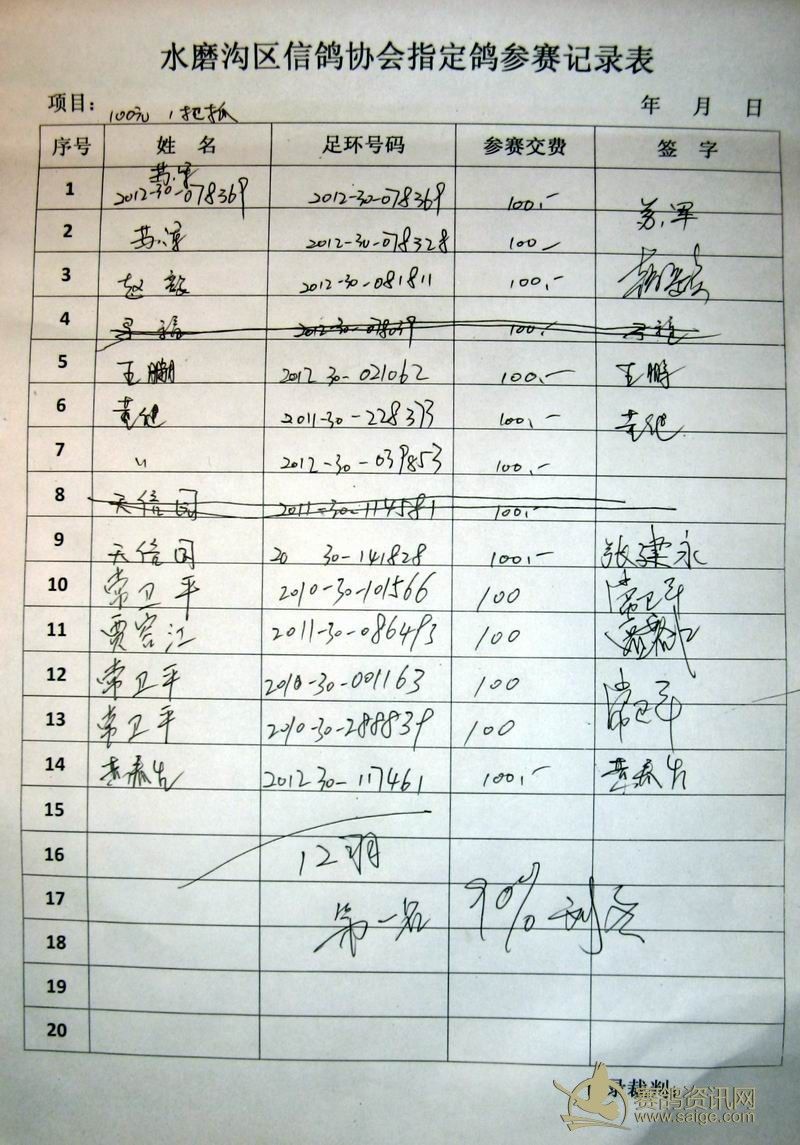 水磨沟区信鸽协会指定鸽参赛记录表
项目: 100元 1把抓 年 月 日
序号 姓名 足环号码 参赛交费 签字
1 苏军 2012-30-078369 2012-30-078369 100.- 苏军
2 苏军 2012-30-078328 100-
3 赵毅 2012-30-081811 100.-
4 2012-30-078039 100.-
5 王鹏 2012 30-021062 100.- 王鹏
6 黄他 2011-30-228373 100.- 黄他
7 〃 2012-30-039853 100.-
8 天信阁 2011-30-114581 100.-
9 天信阁 20 30-141828 100.- 张建永
10 常卫平 2010-30-101566 100 常卫平
11 贾容江 2011-30-086493 100
12 常卫平 2010-30-001163 100 常卫平
13 常卫平 2010-30-288839 100
14 黄春生 2012 30-117461 100.- 黄春生
15
16 12羽
17 第一名 90%
18
19
20
录裁判
赛鸽资讯网
www.saige.com